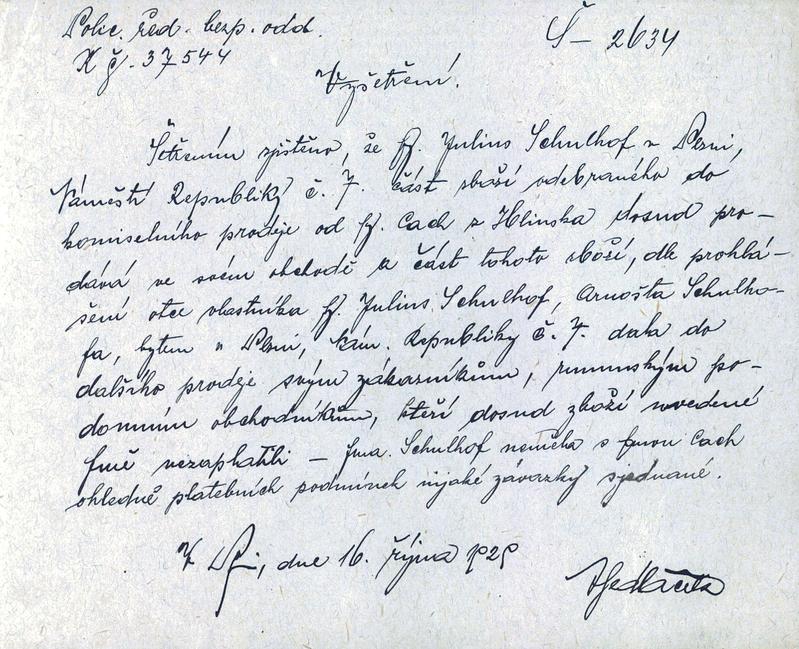 Polic. řed. bezp. odd.
Š – 2634
X č. 37544
Vyšetření.
Šetřením zjištěno, že fy. Julius Schulhof v Plzni,
Náměstí Republiky č. 7. část zboží odebraného do
komiselního prodeje od fy. Cach z Hlinska dosud pro-
dává ve svém obchodě a část tohoto zboží, dle prohlá-
šení otce vlastníka fy. Julius Schulhof, Arnošta Schulho-
fa, bytem v Plzni, nám. Republiky č. 7. dala do
dalšího prodeje svým zákazníkům, rumunským po-
domním obchodníkům, kteří dosud zboží uvedené
firmě nezaplatili – fma. Schulhof neměla s fmou Cach
ohledně platebních podmínek nijaké závazky sjednané.
V Plzni, dne 16. října 1929